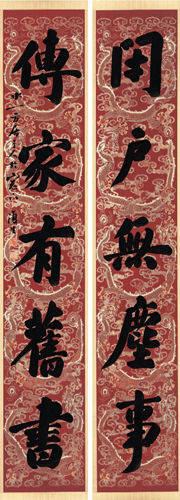 閉戶無塵事
傳家有舊書